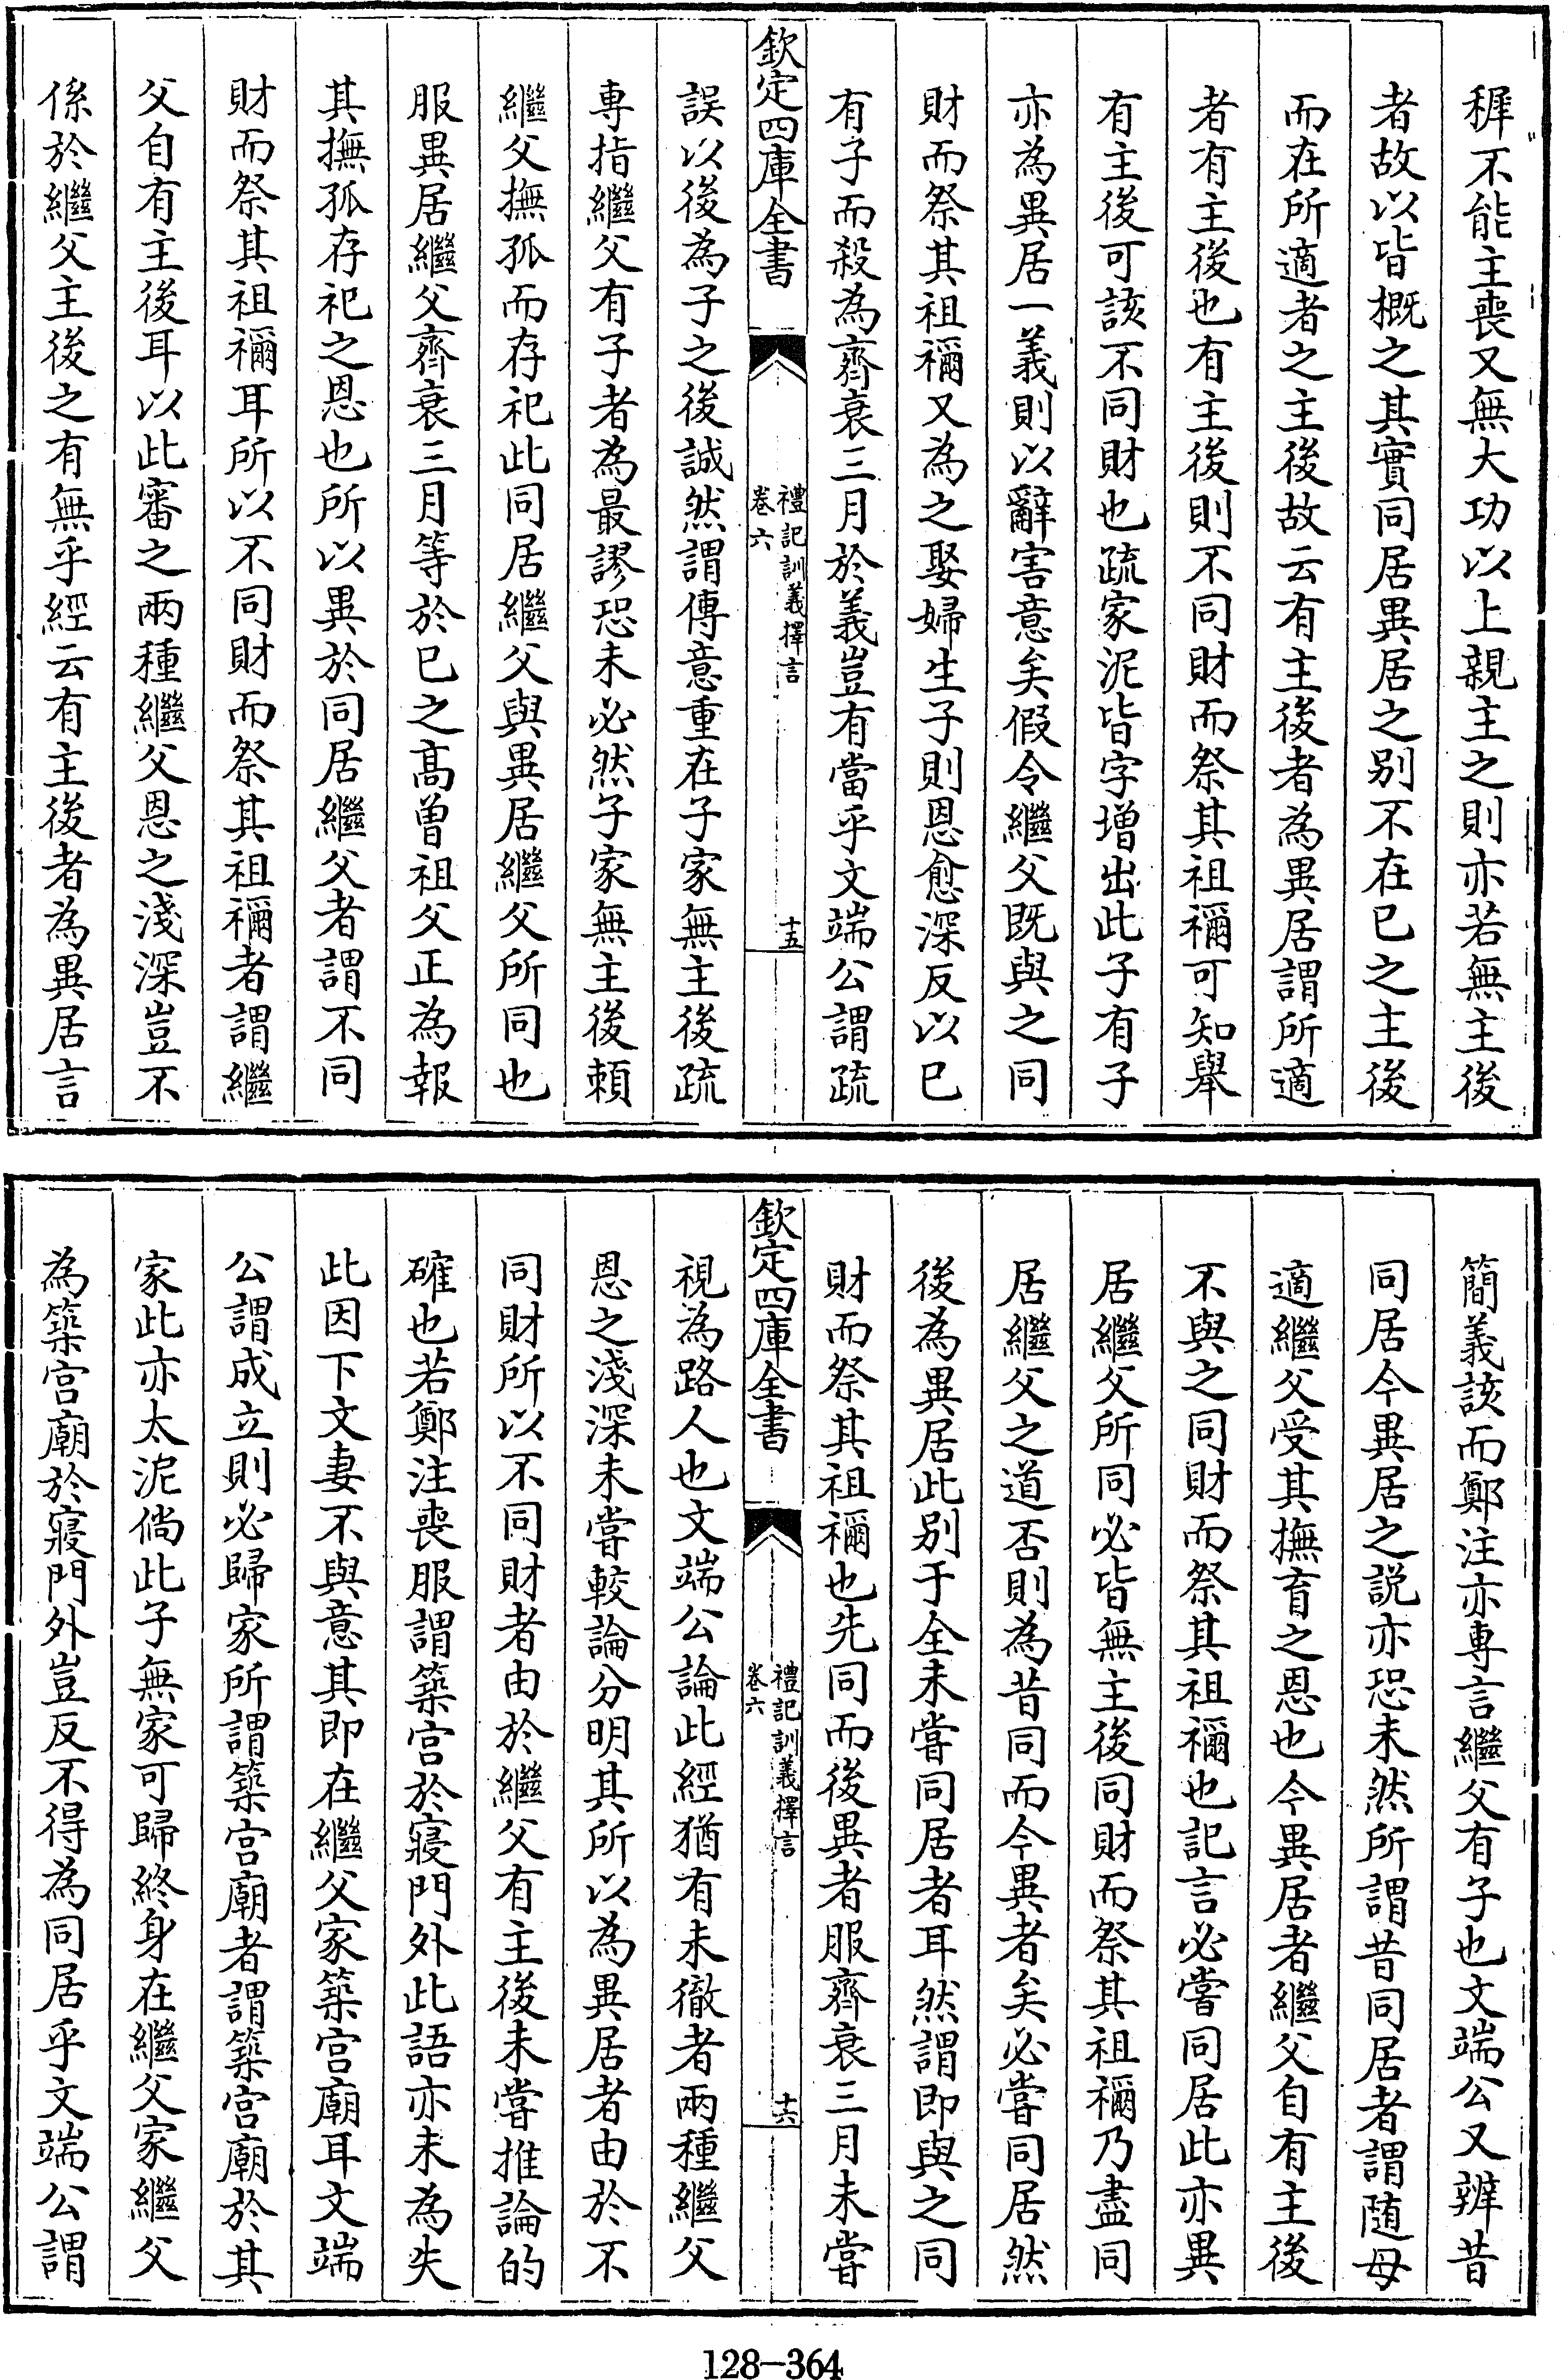 穉不能主喪又無大功以上親主之則亦若無主後
者故以皆概之其實同居異居之别不在已之主後
而在所適者之主後故云有主後者為異居謂所適
者有主後也有主後則不同財而祭其祖禰可知舉
有主後可該不同財也疏家泥皆字增出此子有子
亦為異居一義則以辭害意矣假令繼父既與之同
財而祭其祖禰又為之娶婦生子則恩愈深反以已
有子而殺為齊衰三月於義豈有當乎文端公謂疏
欽定四庫全書
禮記訓義擇言
卷六
十五
誤以後為子之後誠然謂傳意重在子家無主後疏
専指繼父有子者為最謬恐未必然子家無主後頼
繼父撫孤而存祀此同居繼父與異居繼父所同也
服異居繼父齊衰三月等於已之髙曾祖父正為報
其撫孤存祀之恩也所以異於同居繼父者謂不同
財而祭其祖禰耳所以不同財而祭其祖禰者謂繼
父自有主後耳以此審之兩種繼父恩之淺深豈不
係於繼父主後之有無乎經云有主後者為異居言
簡義該而鄭注亦専言繼父有子也文端公又辨昔
同居今異居之説亦恐未然所謂昔同居者謂随母
適繼父受其撫育之恩也今異居者繼父自有主後
不與之同財而祭其祖禰也記言必嘗同居此亦異
居繼父所同必皆無主後同財而祭其祖禰乃盡同
居繼父之道否則為昔同而今異者矣必嘗同居然
後為異居此别于全未嘗同居者耳然謂即與之同
財而祭其祖禰也先同而後異者服齊衰三月未嘗
欽定四庫全書
禮記訓義擇言
卷六
十六
視為路人也文端公論此經猶有未徹者兩種繼父
恩之淺深未嘗較論分明其所以為異居者由於不
同財所以不同財者由於繼父有主後未嘗推論的
確也若鄭注喪服謂築宫於寢門外此語亦未為失
此因下文妻不與意其即在繼父家築宫廟耳文端
公謂成立則必歸家所謂築宫廟者謂築宫廟於其
家此亦太泥倘此子無家可歸終身在繼父家繼父
為築宫廟於寢門外豈反不得為同居乎文端公謂
128-364